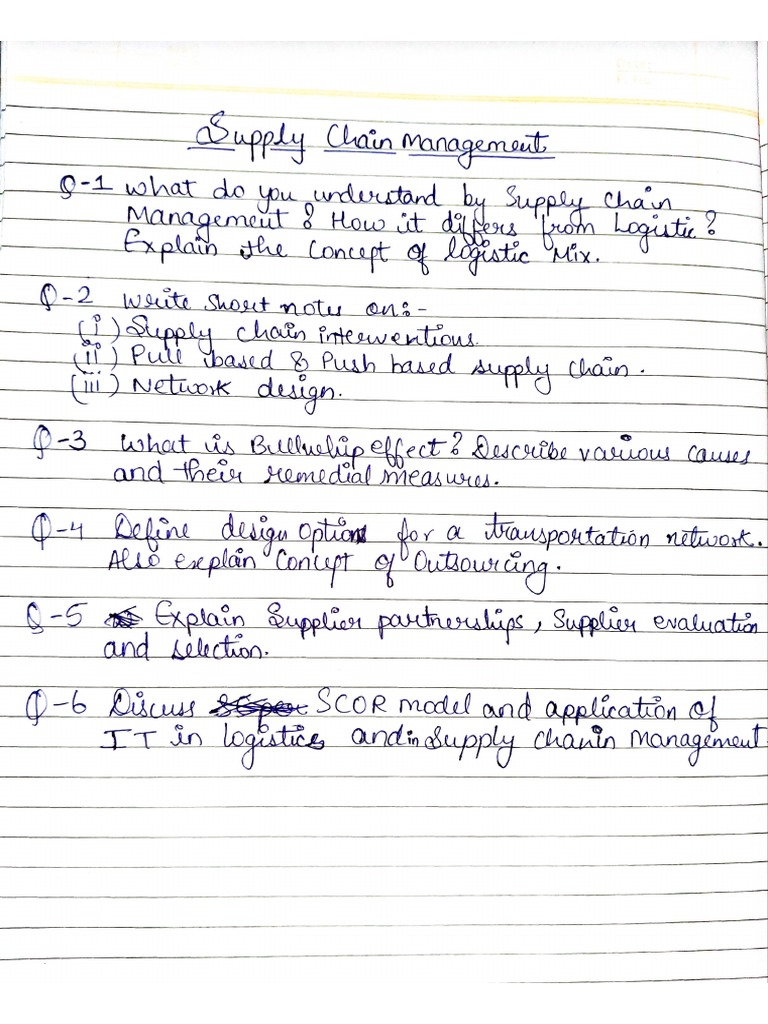 Supply Chain Management
Q-1 What do you understand by Supply Chain
Management & How it differs from Logistic?
Explain the Concept of logistic Mix.
Q-2 Write short notes on:-
(i) Supply chain interventions.
(ii) Pull based & Push based supply chain.
(iii) Network design.
Q-3 What is Bullwhip effect? Describe various causes
and their remedial measures.
Q-4 Define design option for a transportation network.
Also explain Concept of Outsourcing.
Q-5 Explain Supplier partnerships, Supplier evaluation
and selection.
Q-6 Discuss SCOR model and application of
IT in logistics and in Supply chain management